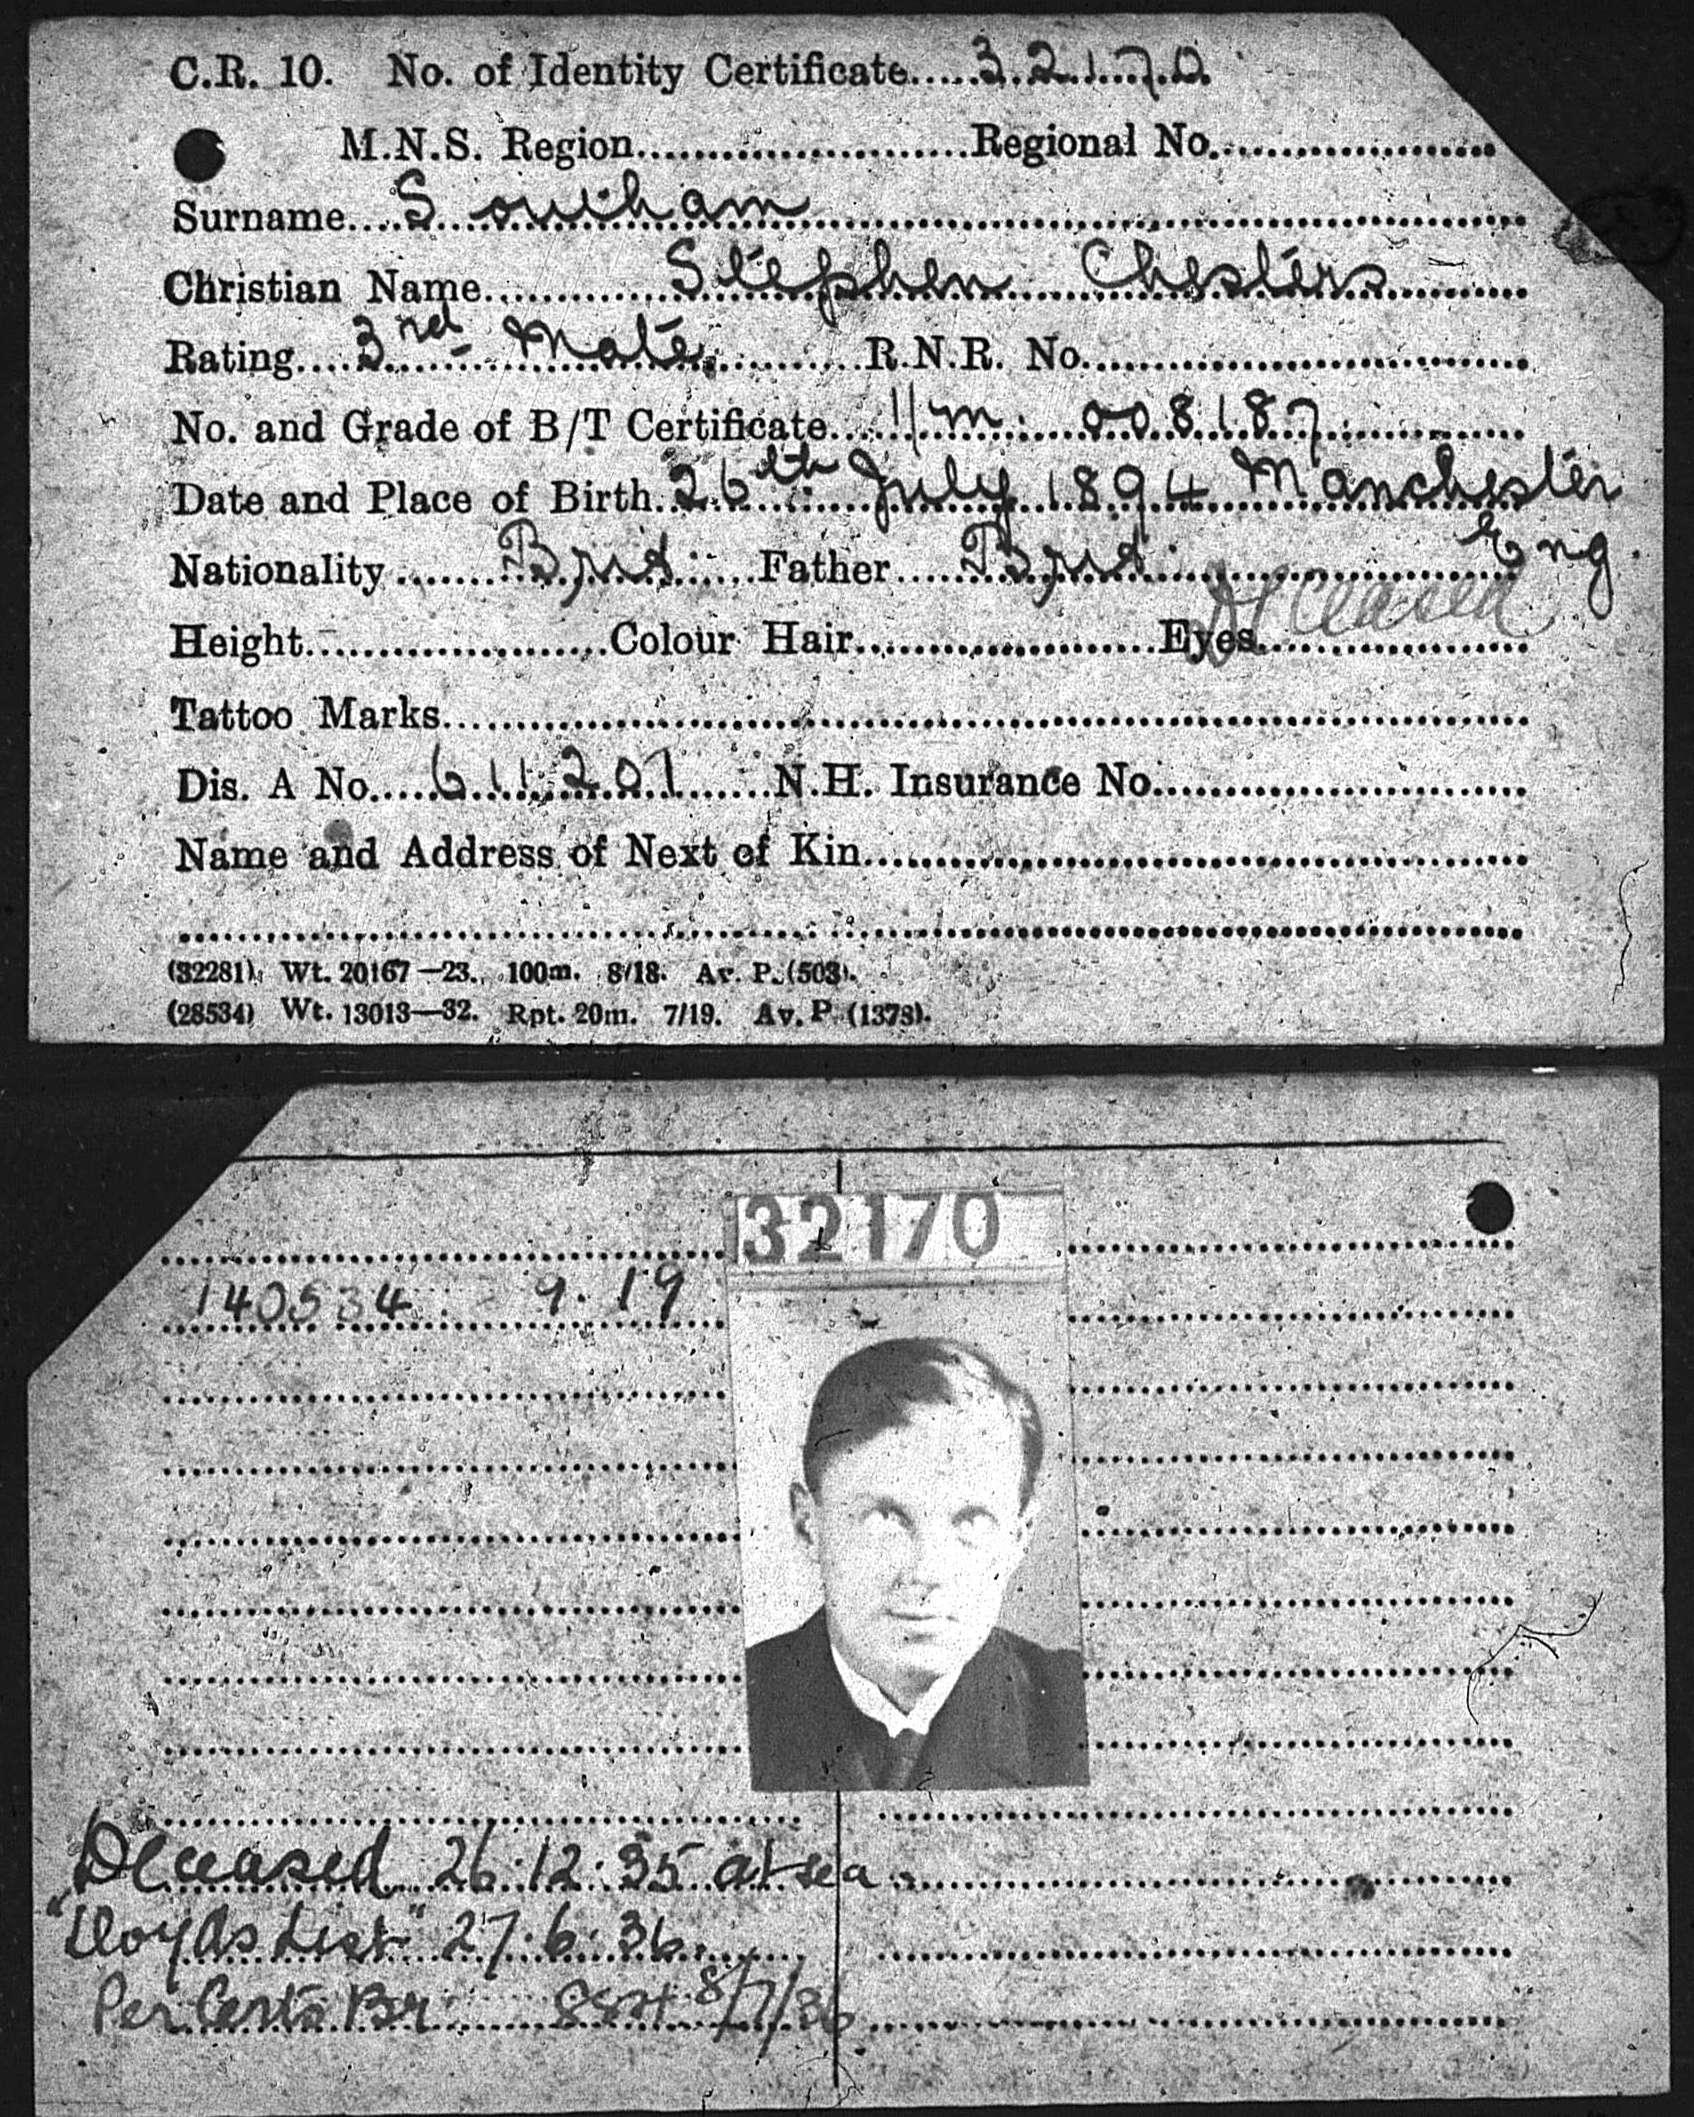 C.R. 10. No. of Identity Certificate.....32170
M.N.S. Region......................Regional No...................
Surname....Southam
Christian Name..........Stephen Chesters
Rating....3rd Mate..........R.N.R. No.
No. and Grade of B/T Certificate....11/m. 008187
Date and Place of Birth..26th July 1894 Manchester
Eng.
Nationality.......Brit.....Father.....Brit.
Deceased
Height....................Colour Hair....................Eyes.
Tattoo Marks
Dis. A No....611201......N.H. Insurance No.
Name and Address of Next of Kin
(32281). Wt. 20167—23. 100m. 8/18. Av. P. (503).
(28534) Wt. 13013—32. Rpt. 20m. 7/19. Av. P. (1378).
32170
140534 9.19
Deceased 26.12.35 at sea.
"Lloyds List" 27.6.36.
Per Certs Br: 8/7/36